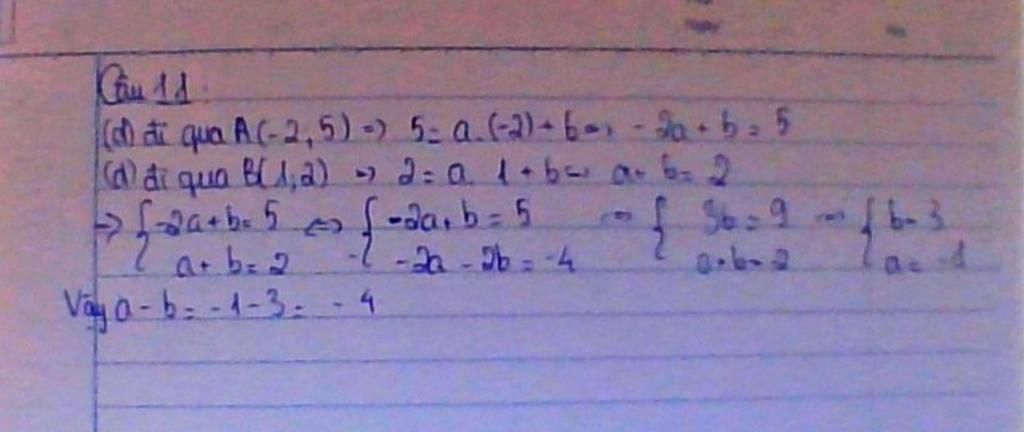 Câu 11.
(d) đi qua A(-2, 5) => 5 = a.(-2) + b => -2a + b = 5
(d) đi qua B(1, 2) => 2 = a. 1 + b => a + b = 2
=> { -2a + b = 5 <=> { -2a + b = 5 <=> { 3b = 9 <=> { b = 3
a + b = 2 - -2a - 2b = -4 a + b = 2 a = -1
Vậy a - b = -1 - 3 = -4